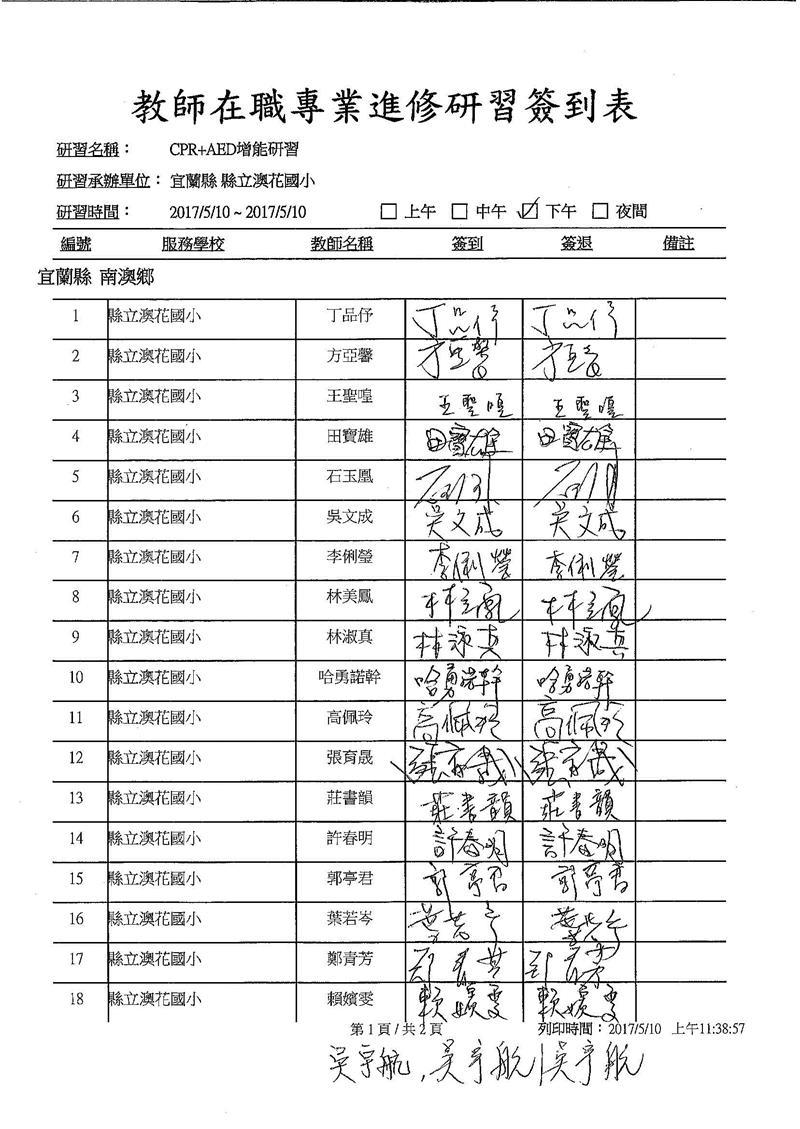 教師在職專業進修研習簽到表
研習名稱： CPR+AED增能研習
研習承辦單位： 宜蘭縣 縣立澳花國小
研習時間： 2017/5/10 ~ 2017/5/10 □ 上午 □ 中午 ☑ 下午 □ 夜間
編號 服務學校 教師名稱 簽到 簽退 備註
宜蘭縣 南澳鄉
1 縣立澳花國小 丁品伃 丁品伃 丁品伃
2 縣立澳花國小 方亞馨 方亞馨 方亞馨
3 縣立澳花國小 王聖嘷 王聖嘷 王聖嘷
4 縣立澳花國小 田寶雄 田寶雄 田寶雄
5 縣立澳花國小 石玉凰
6 縣立澳花國小 吳文成 吳文成 吳文成
7 縣立澳花國小 李俐瑩 李俐瑩 李俐瑩
8 縣立澳花國小 林美鳳 林美鳳 林美鳳
9 縣立澳花國小 林淑真 林淑真 林淑真
10 縣立澳花國小 哈勇諾幹 哈勇諾幹 哈勇諾幹
11 縣立澳花國小 高佩玲 高佩玲 高佩玲
12 縣立澳花國小 張育晟 張育晟 張育晟
13 縣立澳花國小 莊書韻 莊書韻 莊書韻
14 縣立澳花國小 許春明 許春明 許春明
15 縣立澳花國小 郭亭君 郭亭君 郭亭君
16 縣立澳花國小 葉若岑 葉若岑 葉若岑
17 縣立澳花國小 鄭青芳 鄭青芳 鄭青芳
18 縣立澳花國小 賴嬪雯 賴嬪雯 賴嬪雯
第 1 頁 / 共 2 頁 列印時間：2017/5/10 上午11:38:57
吳宇航, 吳宇航 吳宇航